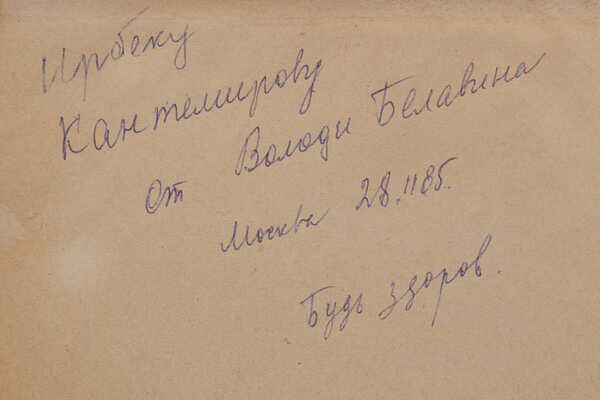 Ирбеку
Кантемирову
от Володи Белавина
Москва 28.1185.
Будь здоров.